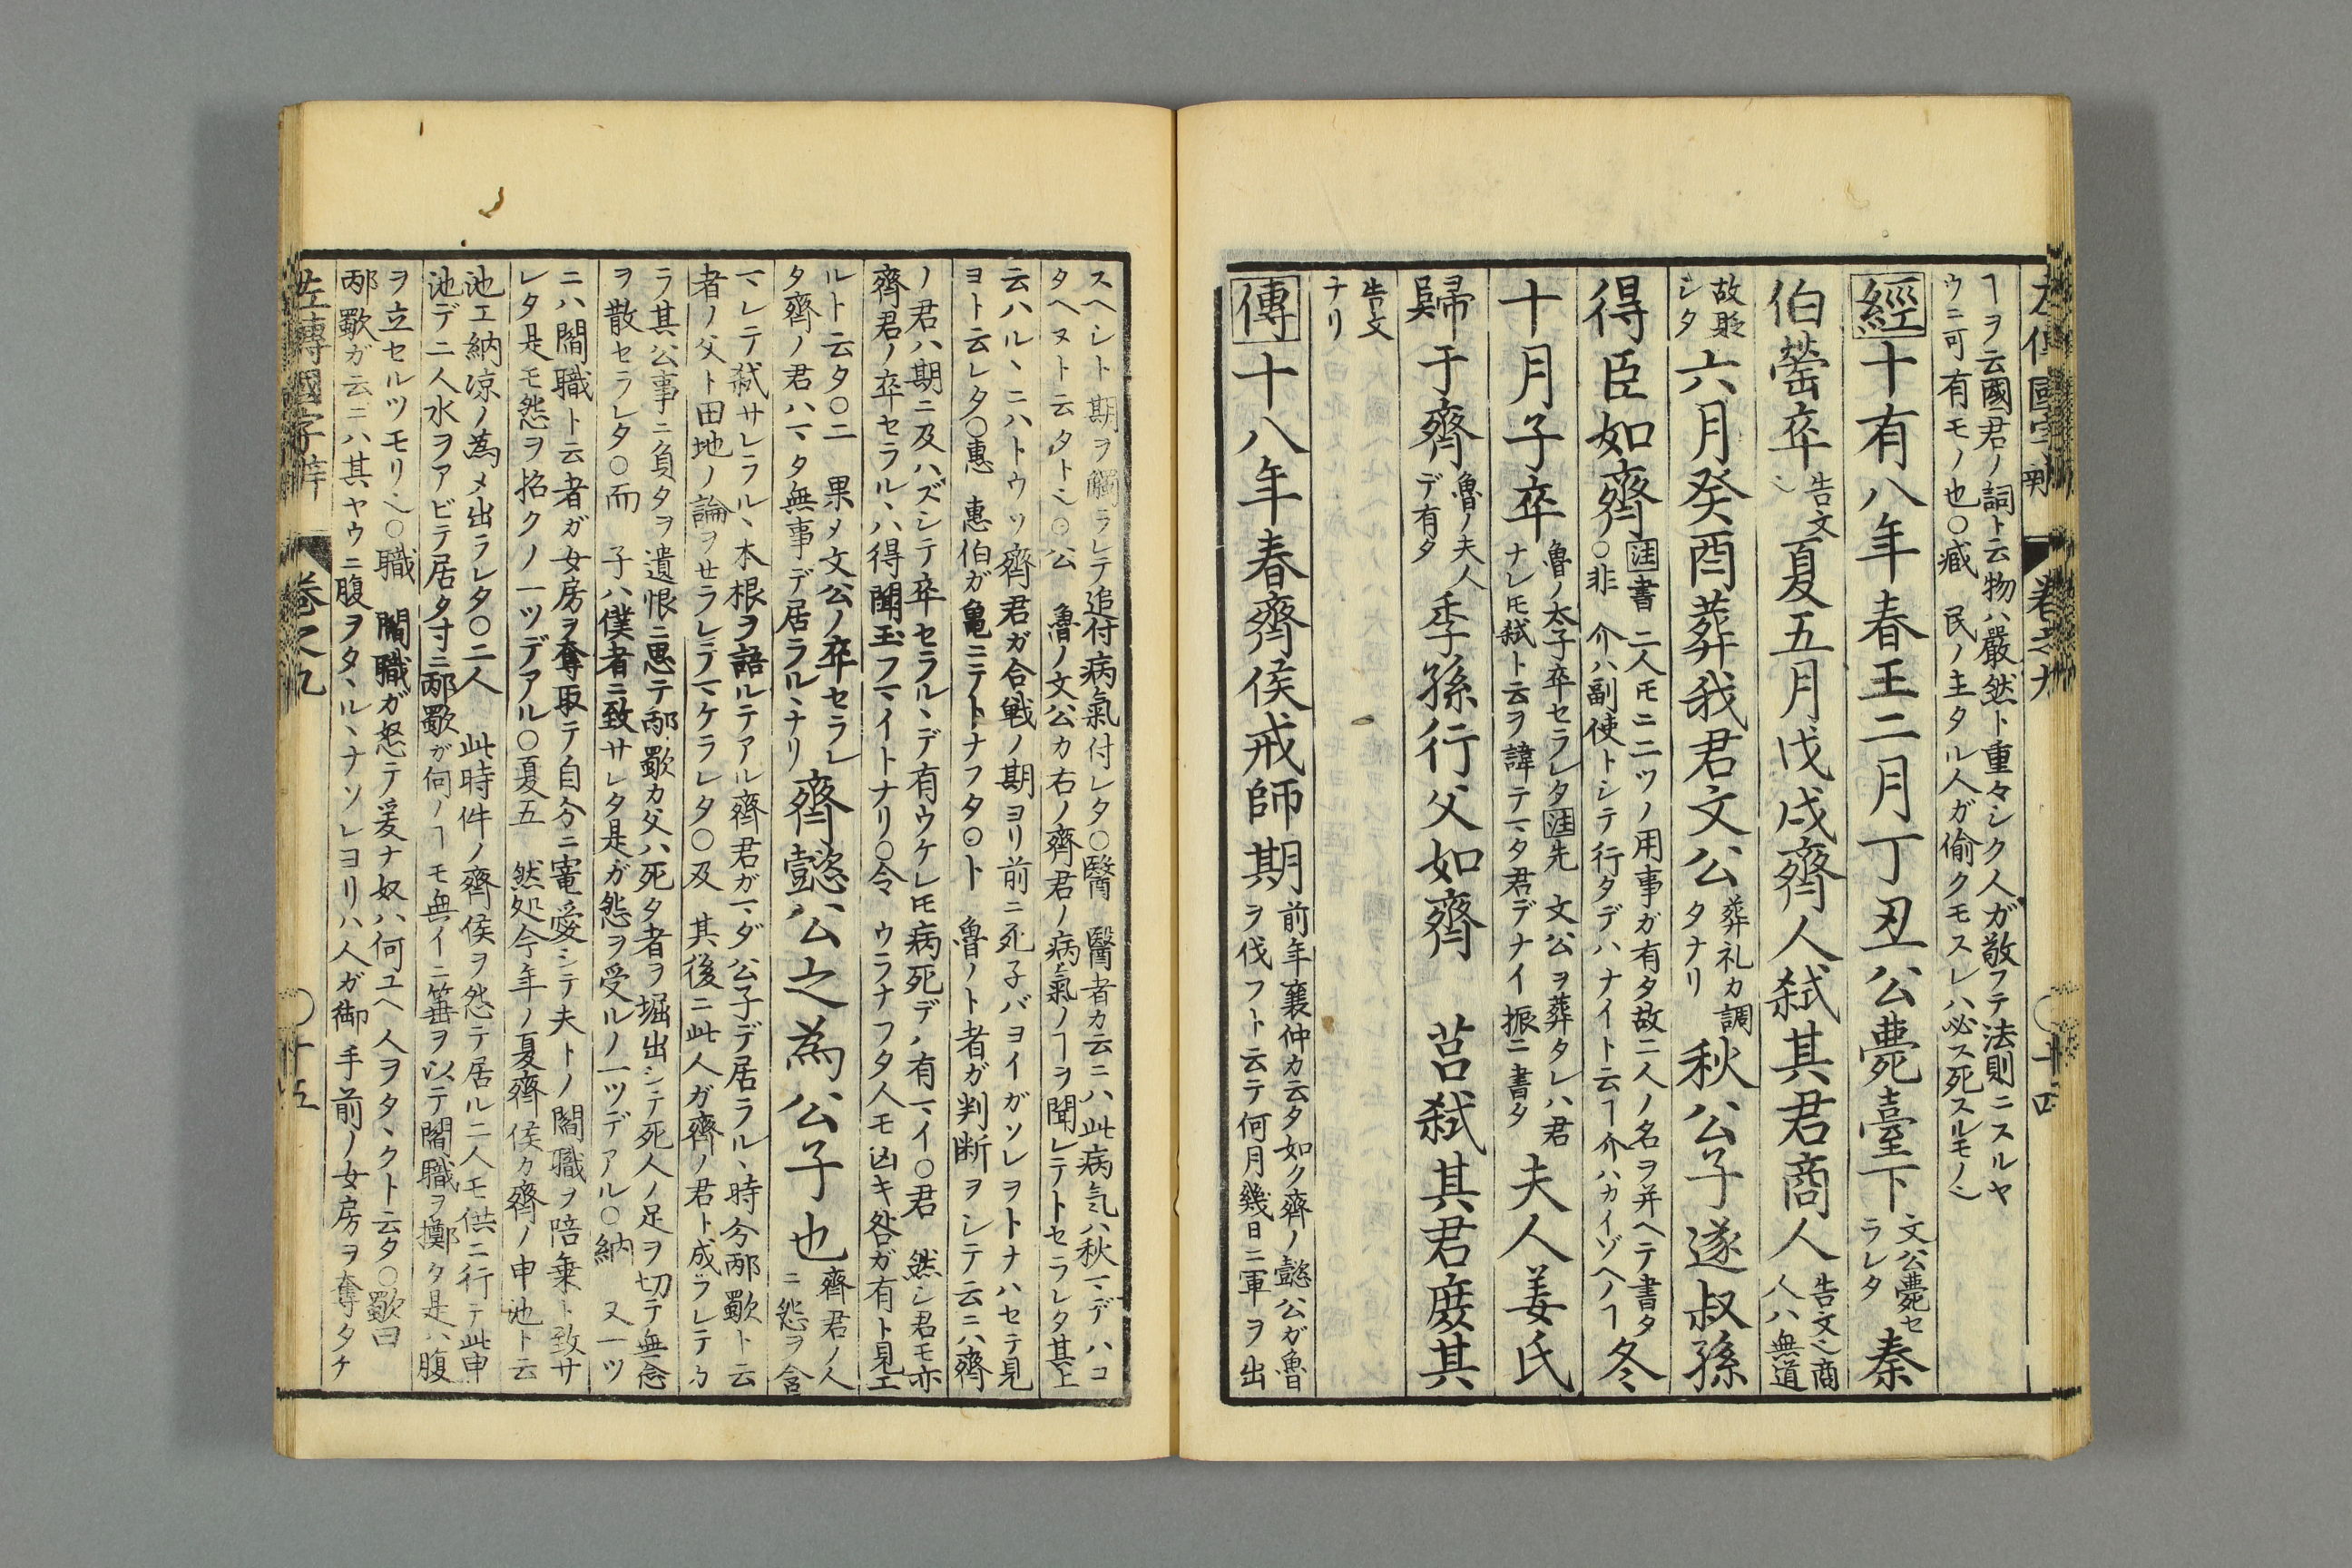 ヿヲ云國君ノ詞ト云物ハ嚴然ト重々シク人ガ敬フテ法則ニスルヤ
ウニ可有モノ也〇臧 民ノ主タル人ガ偷クモスレハ必ス死スルモノ也
經十有八年春王二月丁丑公薨臺下文公薨セラレタ秦
伯罃卒告文也夏五月戊戌齊人弑其君商人告文也商人ハ無道
故貶シタ六月癸酉葬我君文公葬礼カ調タナリ秋公子遂叔孫
得臣如齊注書 二人𪜈ニ二ツノ用事ガ有タ故二人ノ名ヲ并ヘテ書タ〇非 介ハ副使トシテ行タデハナイト云ヿ介ハカイゾヘノヿ冬
十月子卒魯ノ太子卒セラレタ注先 文公ヲ葬タレハ君ナレ𪜈弑ト云ヲ諱テマタ君デナイ振ニ書タ夫人姜氏
歸于齊魯ノ夫人デ有タ季孫行父如齊 莒弑其君庶其
告文ナリ
傳十八年春齊侯戒師期前年襄仲カ云タ如ク齊ノ懿公ガ魯ヲ伐フト云テ何月幾日ニ軍ヲ出
スヘシト期ヲ觸ラレテ追付病氣付レタ〇醫 醫者カ云ニハ此病気ハ秋マデハコ
タヘヌト云タト也〇公 魯ノ文公カ右ノ齊君ノ病氣ノヿヲ聞レテトセラレタ其上
云ハルヽニハトウゾ齊君ガ合戦ノ期ヨリ前ニ死子バヨイガソレヲトナハセテ見
ヨト云レタ〇惠 惠伯ガ亀ニテトナフタ〇卜 魯ノト者ガ判断ヲシテ云ニハ齊
ノ君ハ期ニ及ハズシテ卒セラルヽデ有ウケレ𪜈病死デハ有マイ〇君 然シ君モ亦
齊君ノ卒セラルヽハ得聞玉フマイトナリ〇令 ウラナフタ人モ凶キ咎ガ有ト見エ
ルト云タ〇二 果メ文公ノ卒セラレ
タ齊ノ君ハマタ無事デ居ラルヽナリ齊懿公之為公子也齊君ノ人ニ怨ヲ含
マレテ弑サレラルヽ本根ヲ語ルテアル齊君ガマダ公子デ居ラルヽ時分邴歜ト云
者ノ父ト田地ノ論ヲセラレテマケラレタ〇及 其後ニ此人ガ齊ノ君ト成ラレテカ
ラ其公事ニ負タヲ遺恨ニ思テ邴歜カ父ハ死タ者ヲ堀出シテ死人ノ足ヲ切テ無念
ヲ散セラレタ〇而 子ハ僕者ニ致サレタ是ガ怨ヲ受ルノ一ツデアル〇納 又一ツ
ニハ閻職ト云者ガ女房ヲ奪取テ自分ニ寵愛シテ夫トノ閻職ヲ陪乗ト致サ
レタ是モ怨ヲ招クノ一ツデアル〇夏五 然処今年ノ夏齊侯カ齊ノ申池ト云
池エ納凉ノ為メ出ラレタ〇二人 此時件ノ齊侯ヲ怨テ居ル二人モ供ニ行テ此申
池デ二人水ヲアビテ居タ寸ニ邴歜ガ何ノヿモ無イニ箠ヲ以テ閻職ヲ擲タ是ハ腹
ヲ立セルツモリ也〇職 閻職ガ怒テ爰ナ奴ハ何ユヘ人ヲタヽクト云タ〇歜曰
邴歜ガ云ニハ其ヤウニ腹ヲタヽルヽナソレヨリハ人ガ御手前ノ女房ヲ奪タテ
左傳國字辯 巻之九 〇十五